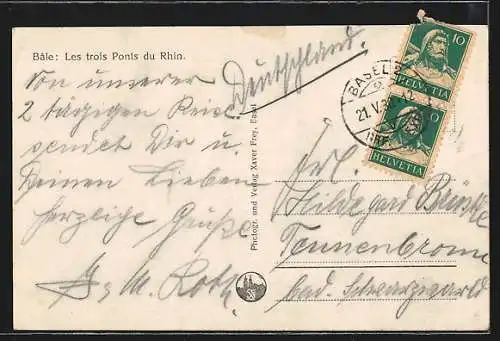 Bâle: Les trois Ponts du Rhin.
Deutschland.
Von unserer
2 tägigen Reise
sendet Dir u.
Deinen Lieben
herzliche Grüße
M. Roth
Photogr. und Verlag Xaver Frey, Basel
10
HELVETIA
BASEL 2
21.V.3
HELVETIA
Frl.
Hildegard
Tennenbronn
bad. Schwarzwald